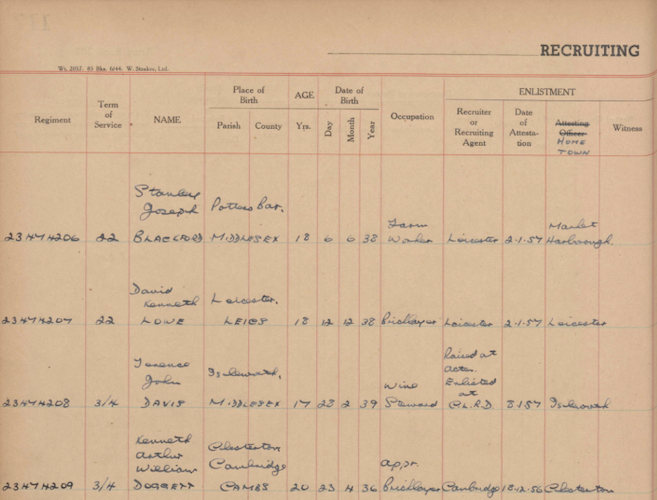 RECRUITING
Wt. 2017. 85 Bks. 6/44. W. Straker, Ltd.
Regiment Term of Service NAME Place of Birth Parish County AGE Yrs. Date of Birth Day Month Year Occupation ENLISTMENT Recruiter or Recruiting Agent Date of Attesta-tion Attesting Officer HOME TOWN Witness
Stanley
Joseph Potters Bar.
Farm Market
23474206 22 BLACKFORD MIDDLESEX 18 6 6 38 Worker Leicester 2-1-57 Harborough
David
Kenneth Leicester.
23474207 22 LOWE LEICS 18 12 12 38 Bricklayer Leicester 2-1-57 Leicester
Raised at
Terence Acton.
John Isleworth. Wine Enlisted
at
23474208 3/4 DAVIS MIDDLESEX 17 28 2 39 Steward C.L.R.D. 8-1-57 Isleworth
Kenneth
Arthur Chesterton
William Cambridge Appr.
23474209 3/4 DOGGETT CAMBS 20 23 4 36 Bricklayer Cambridge 18-12-56 Chesterton